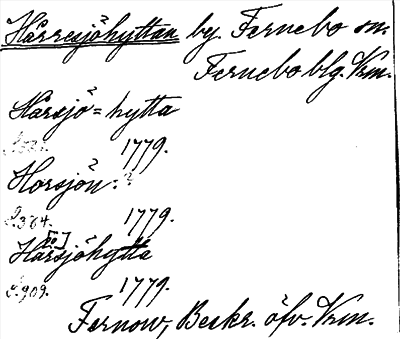 Hårresjöhyttan by. Fernebo sn.
Fernebo blg. Vrm.
Hårsjö=hytta
1779.
Horsjön-?
S.364. 1779.
Ha[?]rsjöhytta
S.909. 1779.
Fernow, Beskr. öfv. Vrm.